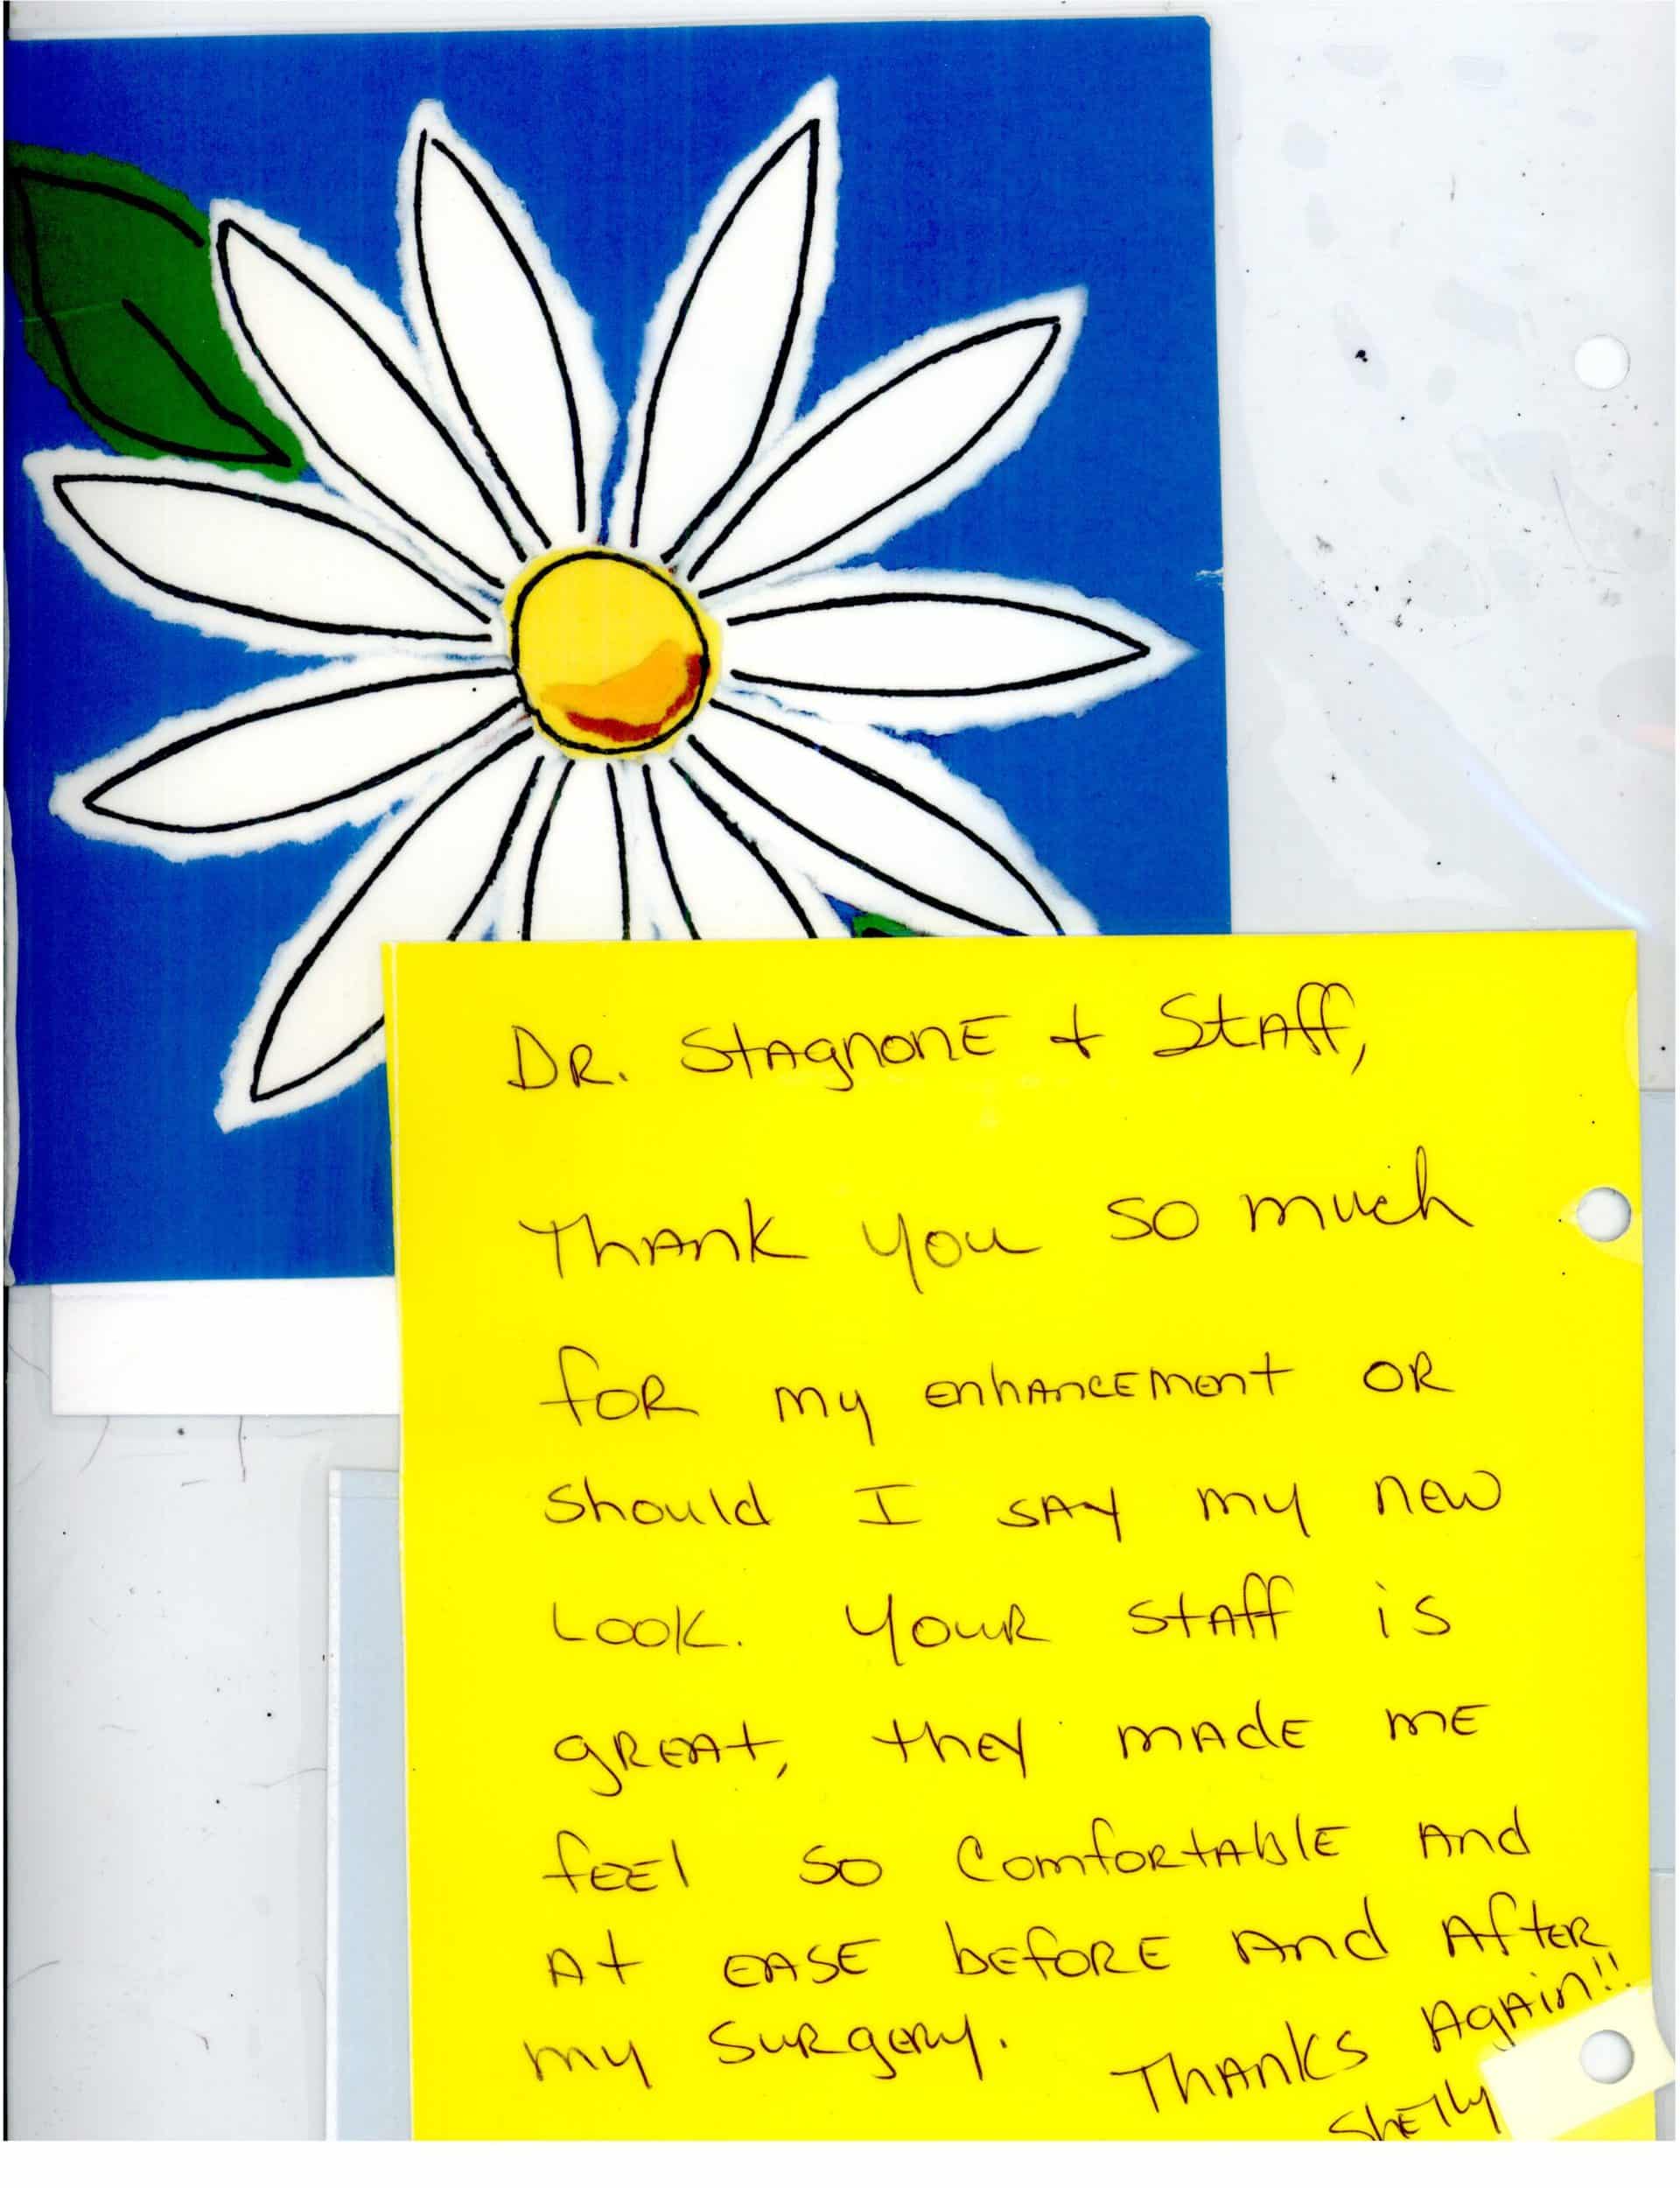 Dr. Stagnone & Staff,
Thank you so much
for my enhancement or
should I say my new
Look. Your staff is
great, they made me
feel so comfortable and
at ease before and after
my surgery.
Thanks Again!!
Shelly